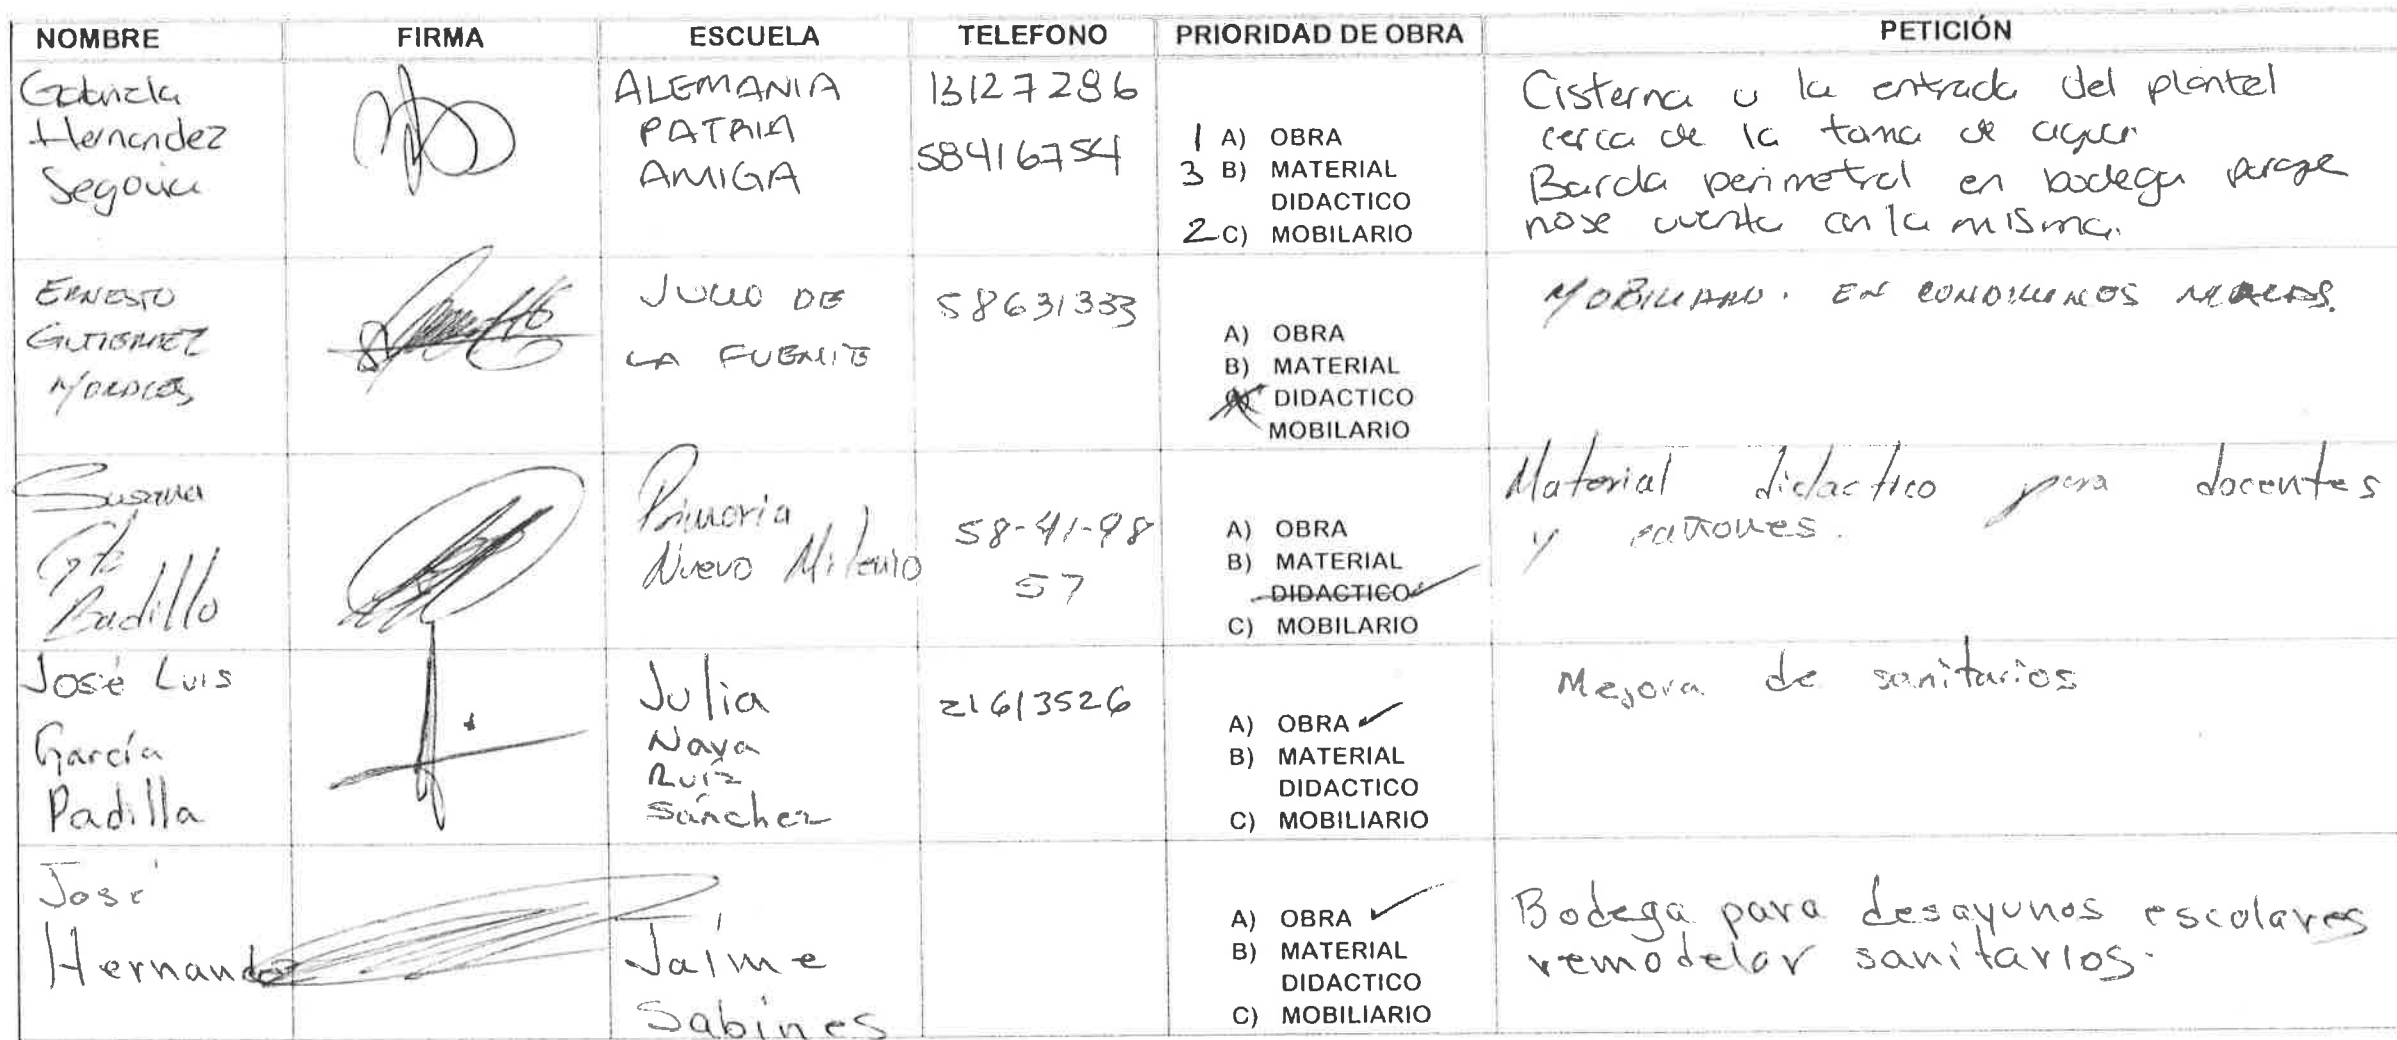 NOMBRE FIRMA ESCUELA TELEFONO PRIORIDAD DE OBRA PETICIÓN
Gabriela
Hernandez
Segovia
ALEMANIA
PATRIA
AMIGA
13127286
58416754
1 A) OBRA
3 B) MATERIAL
DIDACTICO
2 C) MOBILARIO
Cisterna a la entrada del plantel
cerca de la toma de agua
Barda perimetral en bodega porque
nose cuenta con la misma.
ERNESTO
GUTIERREZ
MORALES
JULIO DE
LA FUENTE
58631333
A) OBRA
B) MATERIAL
DIDACTICO
MOBILARIO
MOBILIARIO. EN CONDICIONES MALAS.
Susana
Badillo
Primaria
Nuevo Milenio
58-41-98
57
A) OBRA
B) MATERIAL
DIDACTICO
C) MOBILARIO
Material didactico para docentes
y
José Luis
García
Padilla
Julia
Nava
Ruíz
Sánchez
21613526
A) OBRA ✓
B) MATERIAL
DIDACTICO
C) MOBILIARIO
Mejora de sanitarios
José
Hernandez
Jaime
Sabines
A) OBRA ✓
B) MATERIAL
DIDACTICO
C) MOBILIARIO
Bodega para desayunos escolares
remodelar sanitarios.